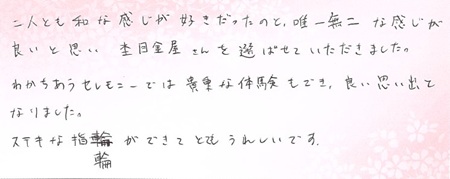 二人とも和な感じが好きだったのと、唯一無二な感じが
良いと思い 杢目金屋さんを選ばせていただきました。
わかちあうセレモニーでは貴重な体験もでき、良い思い出と
なりました。
ステキな指輪ができてとてもうれしいです。
輪